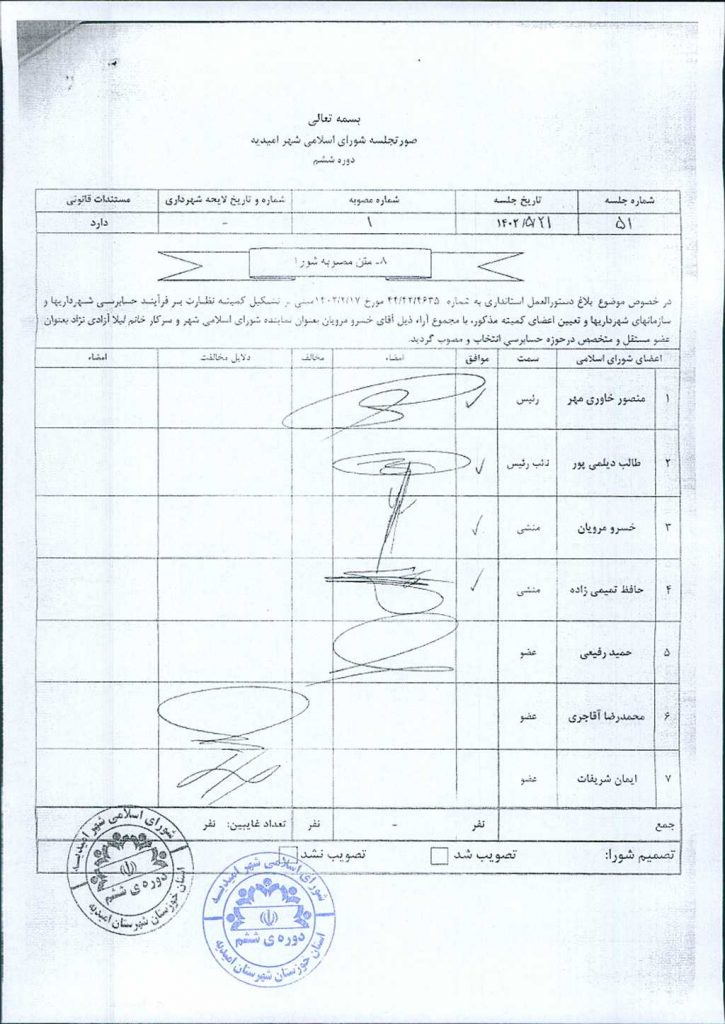 بسمه تعالی
صورتجلسه شورای اسلامی شهر امیدیه
دوره ششم
شماره جلسه تاریخ جلسه شماره مصوبه شماره و تاریخ لایحه شهرداری مستندات قانونی
۵۱ ۱۴۰۲/۵/۲۱ ۱ - دارد
۸- متن مصوبه شورا
در خصوص موضوع بلاغ دستورالعمل استانداری به شماره ۴۴/۲۲/۴۶۳۵ مورخ ۱۴۰۲/۲/۱۷ مبنی بر تشکیل کمیته نظارت بر فرآیند حسابرسی شهرداریها و
سازمانهای شهرداریها و تعیین اعضای کمیته مذکور، با مجموع آراء ذیل آقای خسرو مرویان بعنوان نماینده شورای اسلامی شهر و سرکار خانم لیلا آزادی نژاد بعنوان
عضو مستقل و متخصص درحوزه حسابرسی انتخاب و مصوب گردید.
اعضای شورای اسلامی سمت موافق امضاء مخالف دلایل مخالفت امضاء
۱ منصور خاوری مهر رئیس ✓
۲ طالب دیلمی پور نائب رئیس ✓
۳ خسرو مرویان منشی ✓
۴ حافظ تمیمی زاده منشی ✓
۵ حمید رفیعی عضو
۶ محمدرضا آقاجری عضو
۷ ایمان شریفات عضو
جمع نفر - نفر تعداد غایبین: نفر
تصمیم شورا: تصویب شد تصویب نشد
شورای اسلامی شهر امیدیه
دوره ی ششم
استان خوزستان شهرستان امیدیه
شورای اسلامی شهر امیدیه
دوره ی ششم
استان خوزستان شهرستان امیدیه